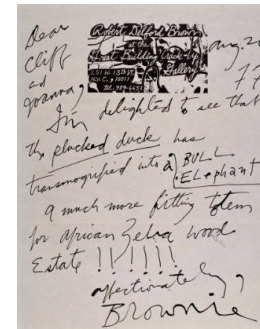 Dear
Cliff
and
Joanna,
Robert Delford Brown
at the
Great Building Crack-Up
Gallery
251 W. 13th ST.
N.Y.C. 10011
Tel. 989-6451
Aug. 20
77
I'm delighted to see that
The plucked duck has
transmogrified into a BULL
ELephant
a much more fitting totem
for african Zebra wood
Estate !!!!!!
affectionately,
Brownie